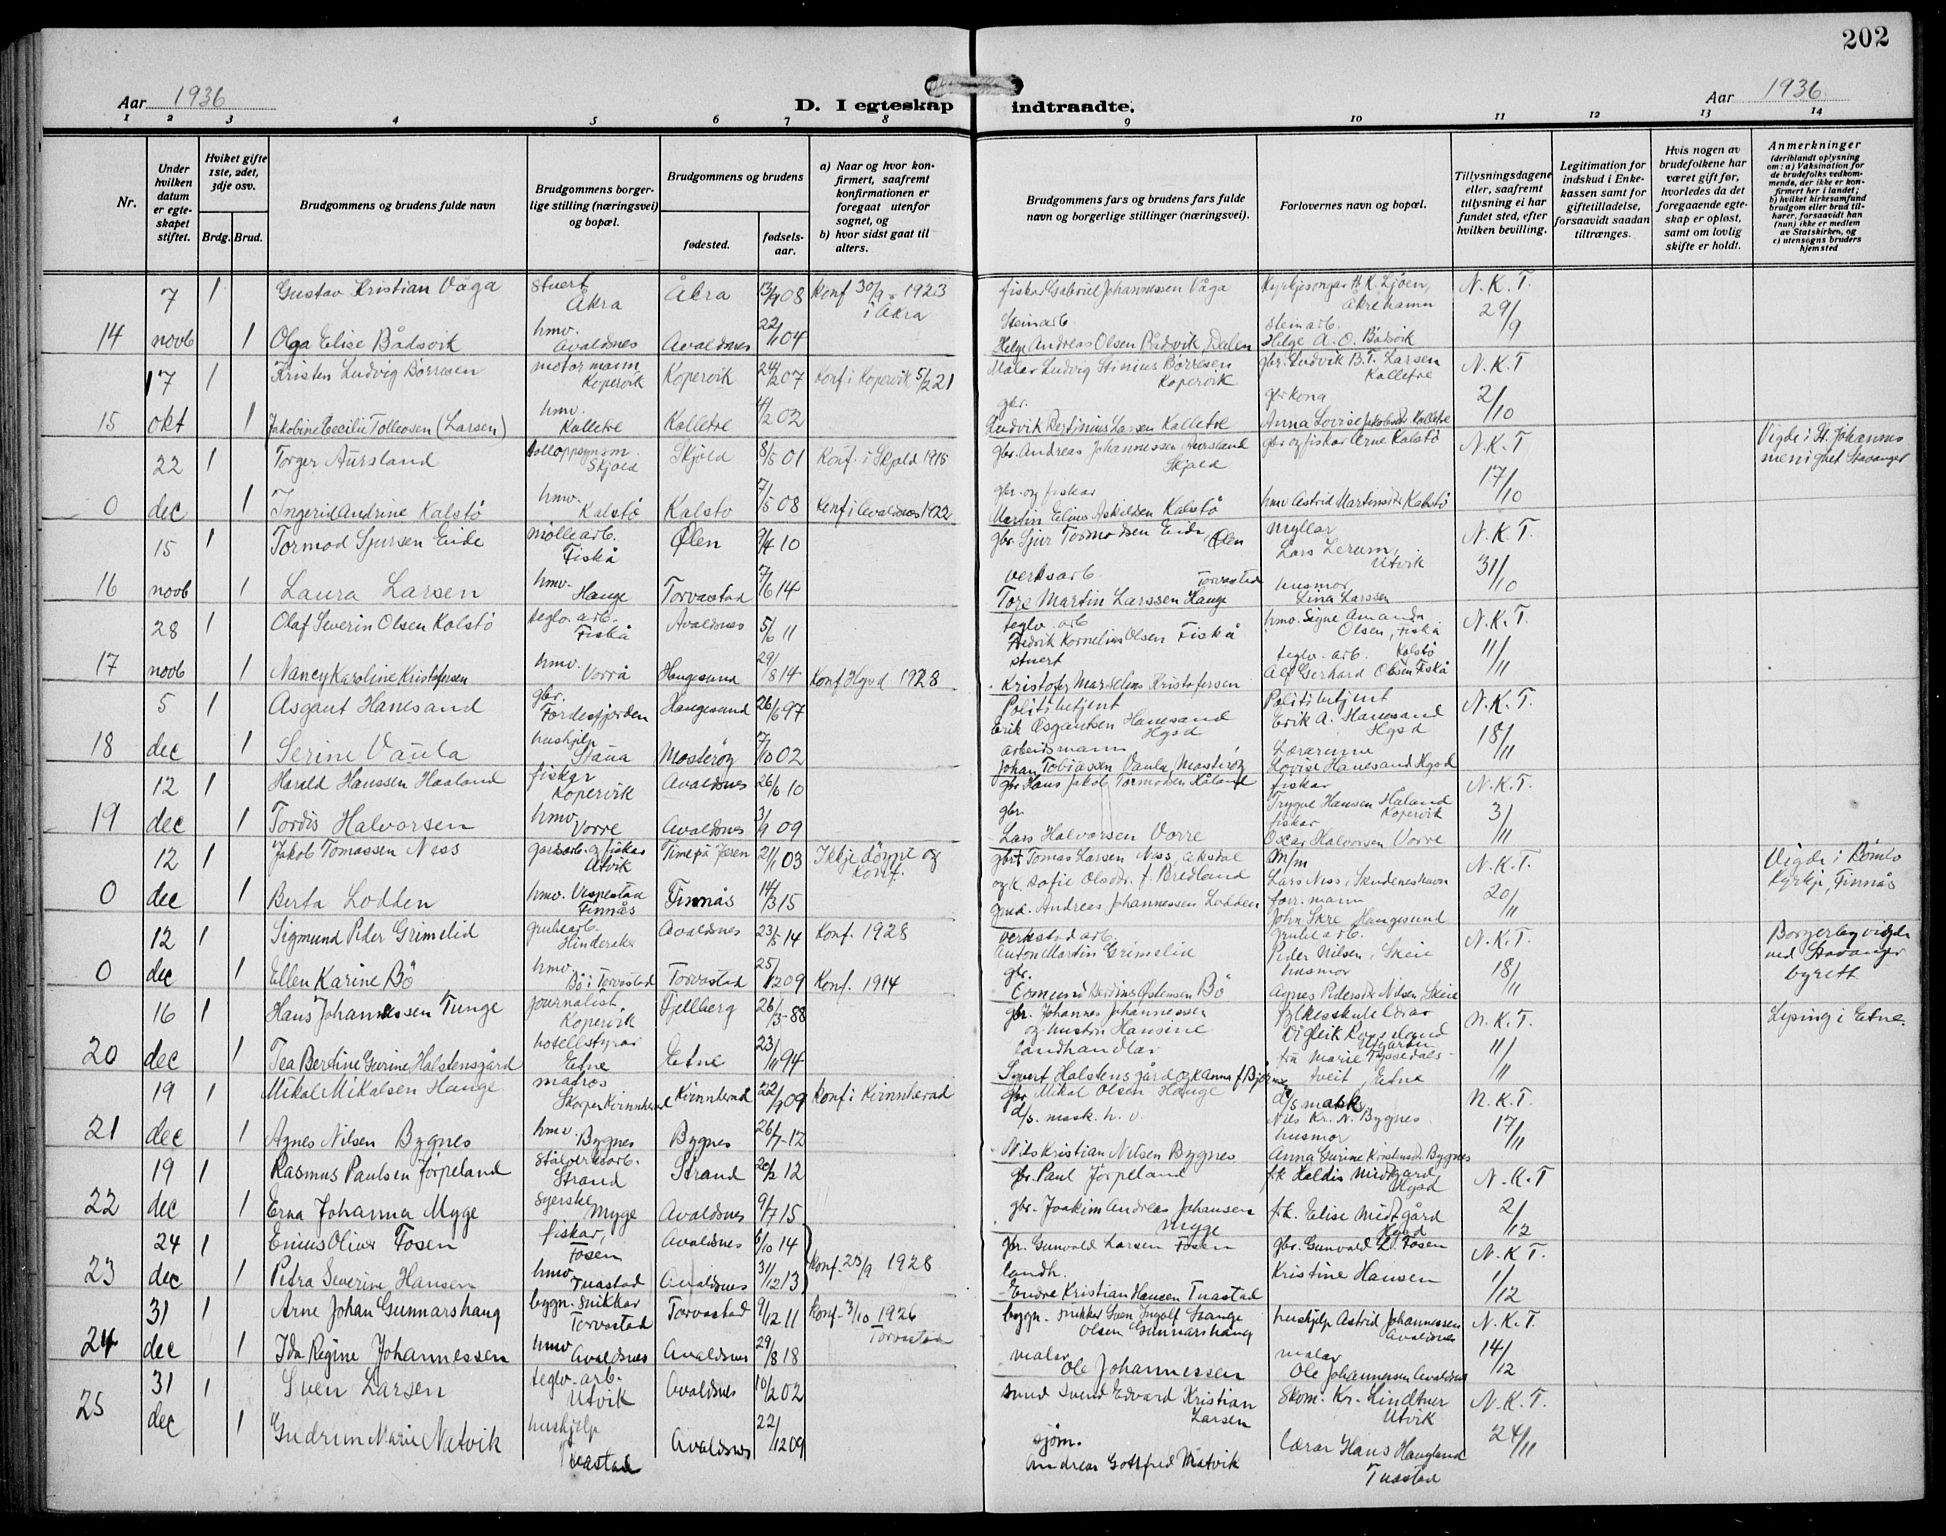 202
Aar 1936
D. I egteskap indtraadte.
Aar 1936
1 2 3 4 5 6 7 8 9 10 11 12 13 14
Nr.
Under hvilken datum er egte-skapet stiftet.
Hviket gifte 1ste, 2det, 3dje osv.
Brdg. Brud.
Brudgommens og brudens fulde navn
Brudgommens borger-lige stilling (næringsvei) og bopæl.
Brudgommens og brudens
fødested.
fødsels-aar.
a) Naar og hvor kon-firmert, saafremt konfirmationen er foregaat utenfor sognet, og
b) hvor sidst gaat til alters.
Brudgommens fars og brudens fars fulde navn og borgerlige stillinger (næringsvei).
Forlovernes navn og bopæl.
Tillysningsdagene eller, saafremt tillysning ei har fundet sted, efter hvilken bevilling.
Legitimation for indskud i Enke-kassen samt for giftetilladelse, forsaavidt saadan tiltrænges.
Hvis nogen av brudefolkene har været gift før, hvorledes da det foregaaende egte-skap er opløst, samt om lovlig skifte er holdt.
Anmerkninger
(deriblandt oplysning om: a) Vaksination for de brudefolks vedkom-mende, der ikke er kon-firmert her i landet; b) hvilket kirkesamfund brudgom eller brud til-hører, forsaavidt han (hun) ikke er medlem av Statskirken, og c) utensogns bruders hjemsted
7 1 Gustav Kristian Våga stuert Åkra Åkra 13/9 08 Konf 30/9 - 1923 i Åkra fiskar Gabriel Johannessen Våga Kyrkjesongar H. K. Ljoen, Åkrehamn N. K. T. 29/9
14 novb 1 Olga Elise Bådsvik hmv. Avaldnes Avaldnes 22/1 04 Steinarb Helge Andreas Olsen Bådsvik, Dalen steinarb. Helge A. O. Bådsvik
17 1 Kristen Ludvig Børresen motormann Kopervik Kopervik 24/2 07 Konf i Kopervik 5/2 21 Malar Ludvig Stinius Børresen Kopervik gbr. Ludvik B. T. Larsen Kalletre N. K. T 2/10
15 okt 1 Jakobine Cecilie Tollevsen (Larsen) hmv. Kalletre Kalletre 4/2 02 gbr. Ludvik Bertinius Larsen Kalletre gbrkona Anna Lovise Jakobsdt Kalletre
22 1 Torger Aursland Skjold Skjold 8/5 01 Konf. i Skjold 1915 gbr. Andreas Johannessen Aursland Skjold gbr og fiskar Arne Kalstø N. K. T 17/10 Vigde i St. Johannes menighet Stavanger
0 dec 1 Ingerid Andrine Kalstø hmv. Kalstø Kalstø 7/5 08 Konf i Avaldnes 1922 gbr. og fiskar Martin Elius Askildsen Kalstø hmv Astrid Martinsdt Kalstø
15 1 Tormod Sjursen Eide møllearb. Fiskå Ølen 9/4 10 gbr. Sjur Tormodsen Eide, Ølen Myllar Lars Lerum, Utvik N. K. T. 31/10
16 novb 1 Laura Larsen hmv. Hauge Torvastad 7/6 14 verksarb Torvastad Tore Martin Larssen Hauge husmor Lina Larssen
28 1 Olaf Severin Olsen Kalstø teglv. arb. Fiskå Avaldnes 5/6 11 teglv. arb Fredrik Kornelius Olsen Fiskå hmv. Signe Amanda Olsen, Fiskå N. K. T. 11/11
17 novb 1 Nancy Karoline Kristofersen hmv. Vorrå Haugesund 29/8 14 Konf Hgsd 1928 stuert Kristofer Marselius Kristofersen teglv. arb. Kalstø Alf Gerhard Olsen Fiskå
5 1 Asgaut Hanesand gbr. Førdesfjorden Haugesund 26/6 97 Politibetjent Erik Asgautsen Hanesand Hgsd Politibetjent Erik A. Hanesand Hgsd N. K. T. 18/11
18 dec 1 Serine Vaula hushjelp Staua Mosterøy 7/10 02 arbeidsmann Johan Tobiassen Vaula, Mosterøy Lærarinne Lovise Hanesand Hgsd
12 1 Harald Hanssen Haaland fiskar Kopervik Avaldsnes 26/6 10 gbr Hans Jakob Tormodsen Håland fiskar Trygve Hansen Håland Kopervik N. K. T. 3/11
19 dec 1 Tordis Halvorsen hmv Vorre Avaldsnes 3/9 09 gbr. Lars Halvorsen Vorre fiskar Oscar Halvorsen Vorre
12 1 Jakob Tomassen Ness gardsarb. og fiskar Utvik Time på Jæren 21/1 03 Ikkje døypt og konf. gbr Tomas Larsen Ness, Aksdal og k. Sofie Olsdtr. f. Bredland m/m Lars Ness, Skudeneshavn N. K. T. 20/11 Vigde i Bømlo kyrkje, Finnås
0 dec 1 Berta Lodden hmv. Vespestad Finnås Finnås 14/3 15 gmd. Andreas Johannessen Lodden forr. mann John Skre Haugesund
12 1 Sigmund Peder Grimelid grubearb. Hinderaker Avaldsnes 23/5 14 Konf. 1928 verkstadarb. Anton Martin Grimelid grubearb. Peder Nilsen, Skeie N. K. T. 18/11 Borgerleg vigde ved Stavanger byrett
0 dec 1 Ellen Karine Bö hmv. Bö i Torvastad Torvastad 25/12 09 Konf. 1914 gbr. Edmund Berdius Østensen Bö husmor Agnes Pedersdt Nilsen Skeie
16 1 Hans Johannessen Tunge journalist Kopervik Fjellberg 26/3 - 88 gbr. Johannes Johannessen og hustru Hansine fylkesskulelærar Eigleik Rogneland Utgården N. K. T. 11/11 Lysing i Etne.
20 dec 1 Tea Bertine Gurine Halstensgård hotellstyrar Etne Etne 23/11 94 landhandlar Sivert Halstensgård og k Anna f. fru Marie Tyssedals-tveit, Etne
19 1 Mikal Mikalsen Hauge matros Skorpo Kvinnherad Kvinnherad 22/9 09 Konf i Kvinnherad gbr Mikal Olsen Hauge d/s mask. Nils Kr. N. Bygnes N. K. T. 17/11
21 dec 1 Agnes Nilsen Bygnes hmv. Bygnes Bygnes 26/7 - 12 d/s. mask. Nils Kristian Nilsen Bygnes husmor Anna Gurine Kristensdt Bygnes
19 1 Rasmus Paulsen Jörpeland stålverksarb. Strand Strand 20/2 12 gbr. Paul Jörpeland frk Haldis Midtgård Hgsd N. K. T 2/12
22 dec 1 Erna Johanna Myge syerske Myge Avaldsnes 9/7 15 gbr. Joakim Andreas Johansen Myge frk. Elise Midtgård Hgsd
24 1 Enius Oliver Fosen fiskar, Fosen Avaldsnes 6/10 14 Konf. 23/9 1928 gbr. Gunvald Larsen Fosen gbr. Gunvald L. Fosen N. K. T. 1/12
23 dec 1 Petra Severine Hansen hmv Tuastad Avaldsnes 31/12 13 landh. Endre Kristian Hansen Tuastad Kristine Hansen
31 1 Arne Johan Gunnarshaug bygn. snikkar Torvastad Torvastad 9/12 11 Konf. 3/10 1926 Torvastad bygn. snikker Sven Ingolf Stange Olsen Gunnarshaug hushjelp Astrid Johannessen Avaldsnes N. K. T. 14/12
24 dec 1 Ida Regine Johannessen hmv Avaldsnes Avaldsnes 29/8 18 malar Ole Johannessen malar Ole Johannessen Avaldsnes
31 1 Sven Larsen teglv. arb. Utvik Avaldsnes 10/2 02 smed Svend Edvard Kristian Larsen skom. Kr. Lindtner Utvik N. K. T. 24/11
25 dec 1 Gudrun Marie Natvik hushjelp Tuastad Avaldsnes 22/12 09 sjöm. Andreas Gottfred Natvik lærar Hans Haugland Tuastad